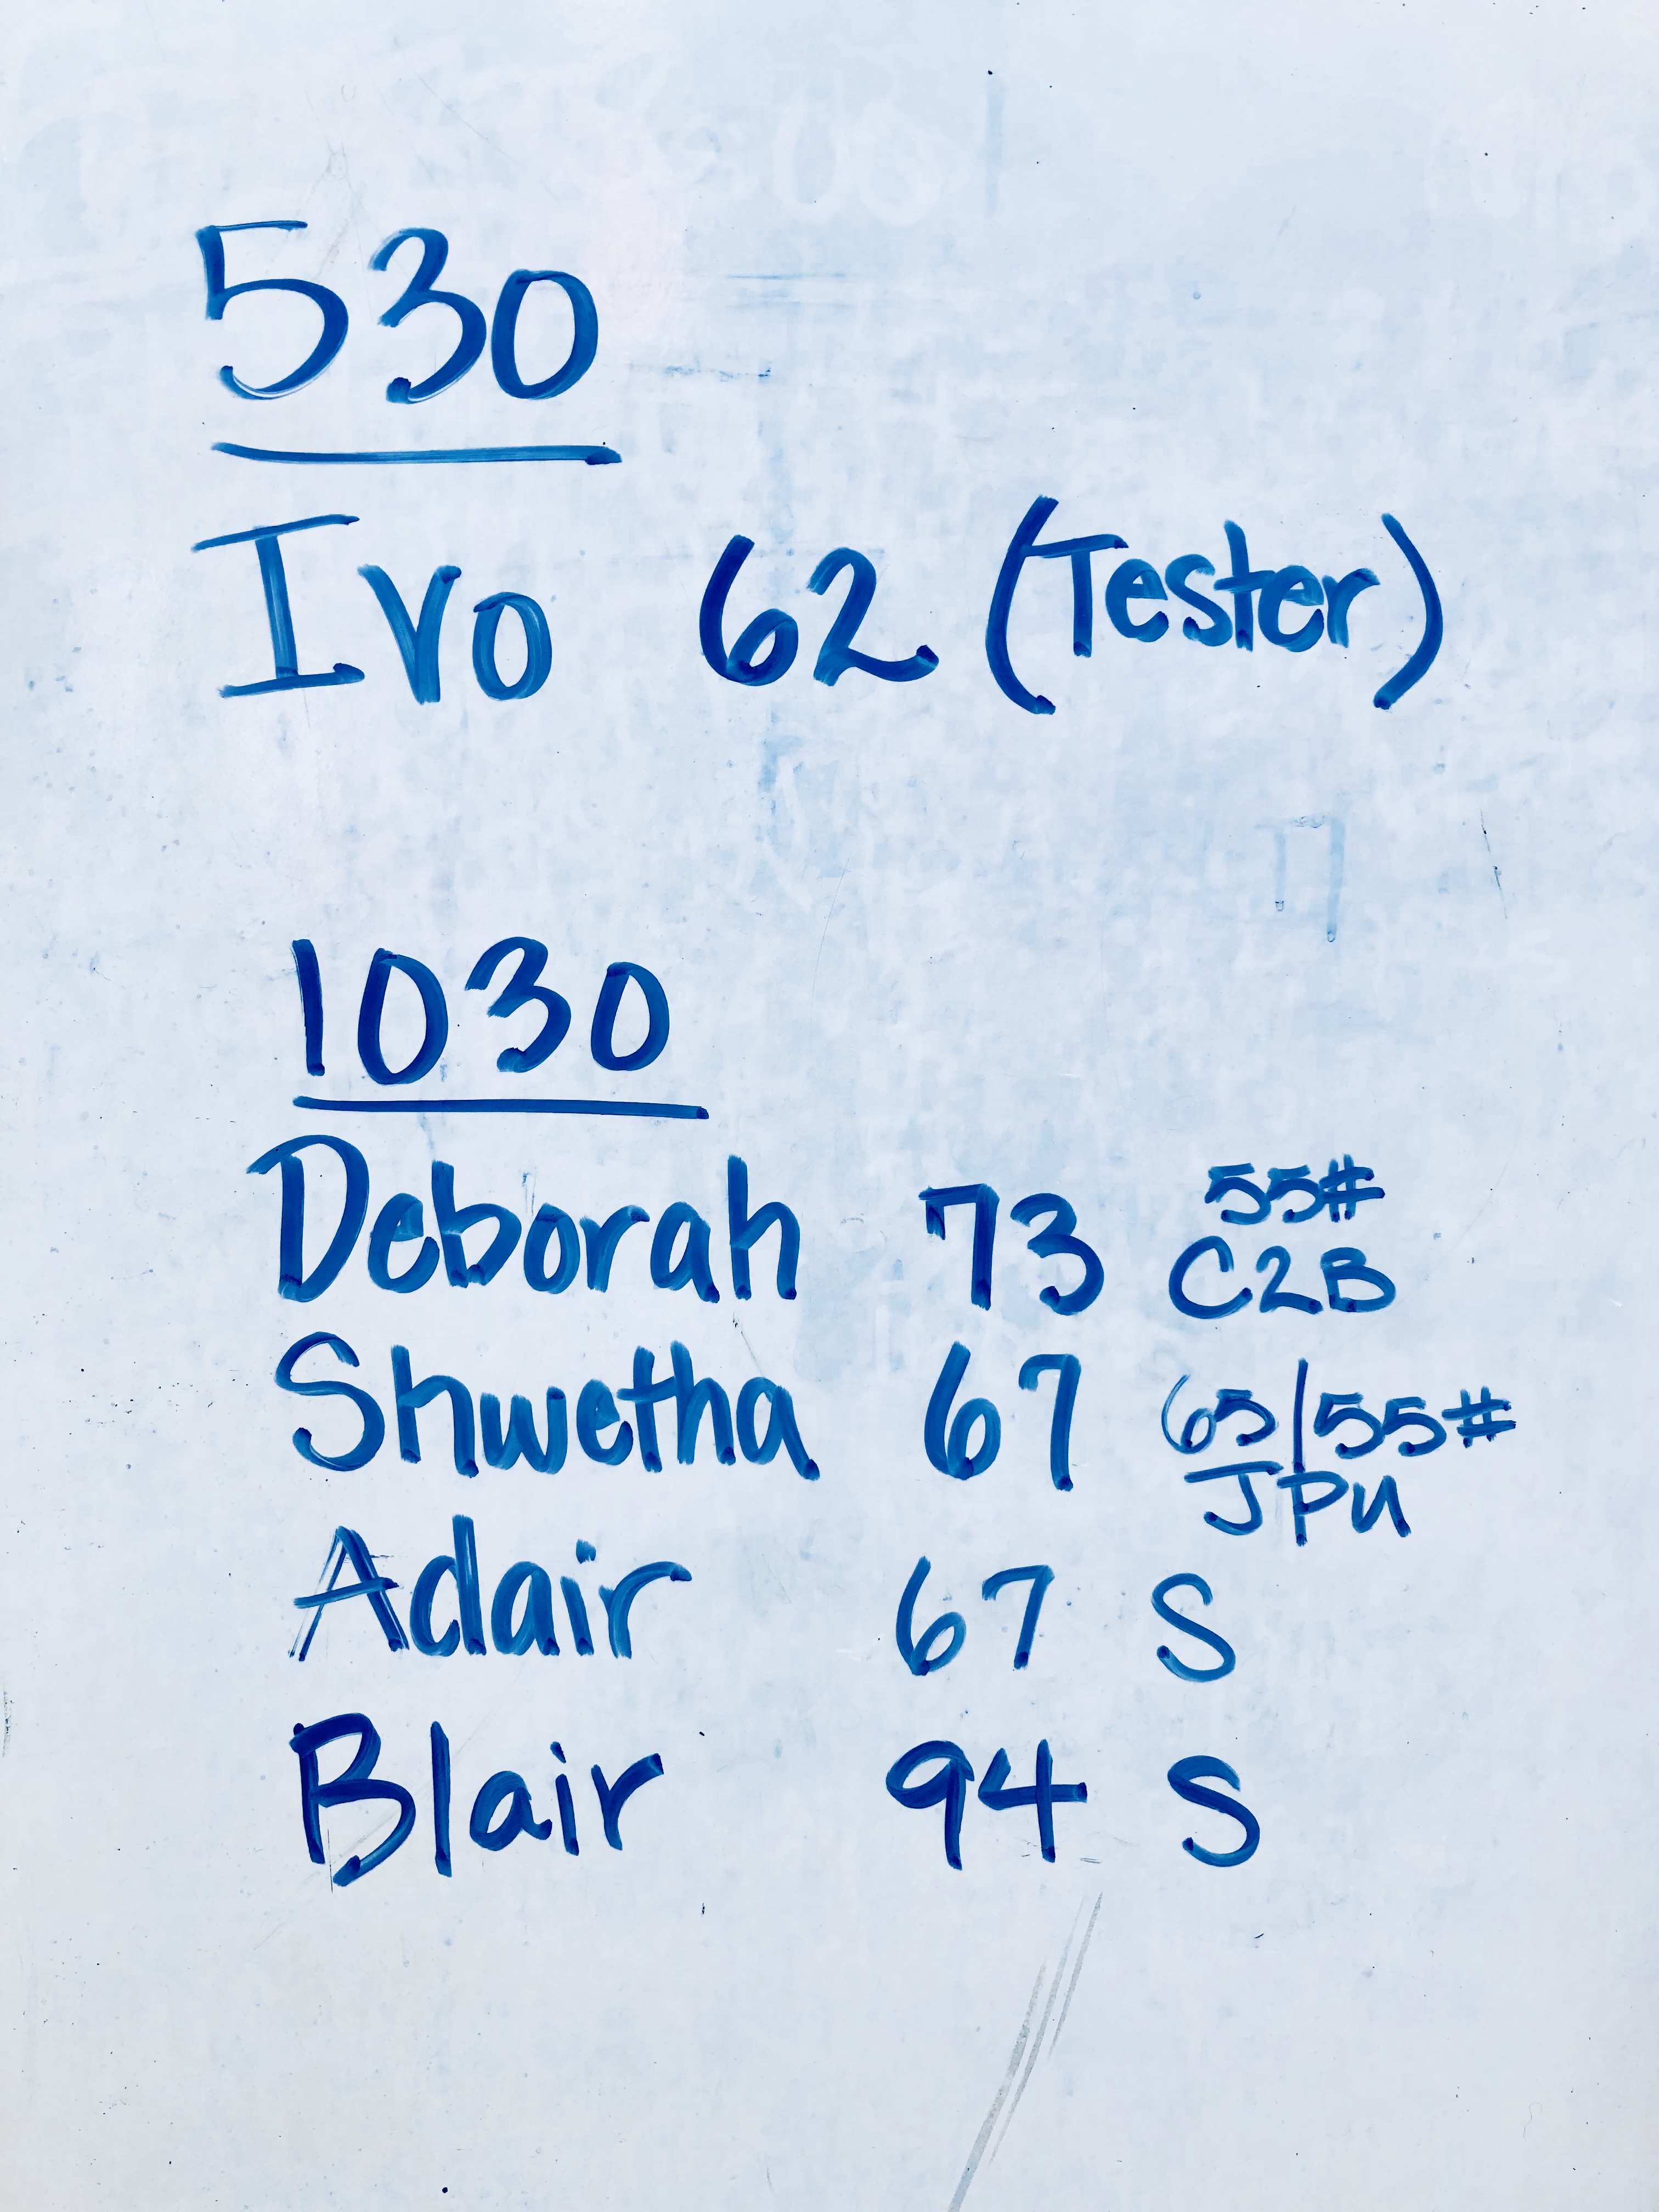 530
Ivo 62 (Tester)
1030
Deborah 73 55#
C2B
Shwetha 67 65/55#
JPU
Adair 67 S
Blair 94 S